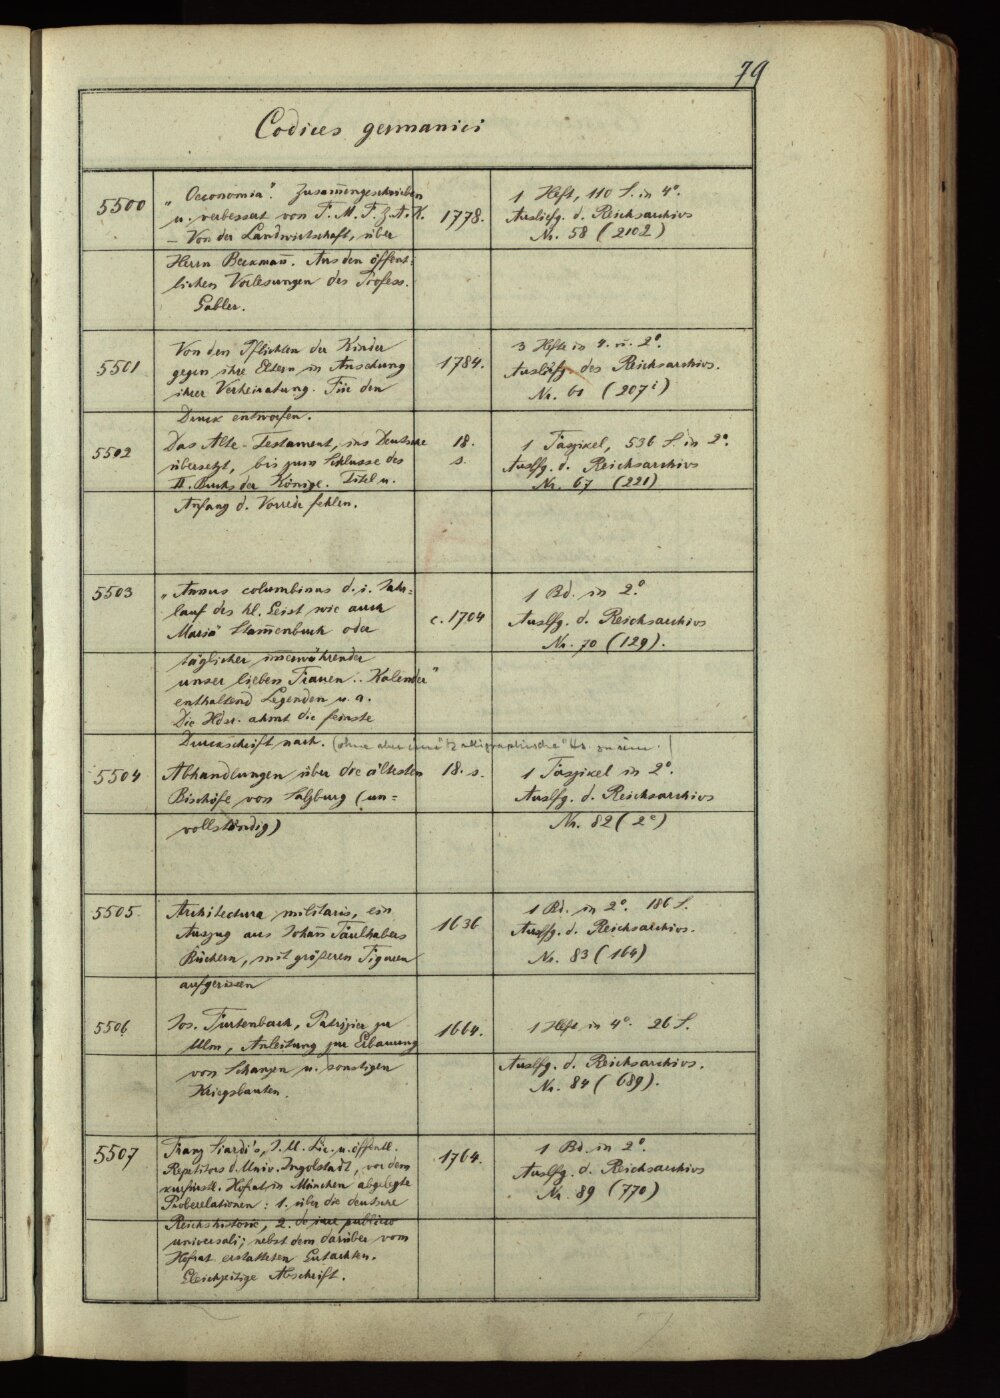 79
Codices germanici
5500
„Oeconomia". Zusam̄engeschrieben
u. verbessert von F. M. F. Z. A. K.
– Von der Landwirtschaft, über
Herrn Beckman̄. Aus den öffent-
lichen Vorlesungen des Profess.
Gabler.
1778.
1 Heft, 110 S. in 4°.
Ausliefg. d. Reichsarchivs
Nr. 58 (2102)
5501
Von den Pflichten der Kinder
gegen ihre Eltern in Ansehung
ihrer Verheiratung. Für den
Druck entworfen.
1784.
3 Hefte in 4. u. 2°.
Auslfg. des Reichsarchivs.
Nr. 61 (207
5502
Das Alte Testament, ins Deutsche
übersetzt, bis zum Schlusse des
II. Buchs der Könige. Titel u.
Anfang d. Vorrede fehlen.
18.
s.
1 Faszikel, 536 S. in 2°.
Auslfg. d. Reichsarchivs
Nr. 67 (221)
5503
„Annus columbinus d. i. Jahr=
lauf des hl. Geist wie auch
Mariä Stam̄enbuch oder
täglicher im̄erwährender
unser lieben Frauen .. Kalender"
enthaltend Legenden u. a.
Die Hdsr. ahmt die feinste
Druckschrift nach. (ohne aber
c. 1704
1 Bd. in 2°.
Auslfg. d. Reichsarchivs
Nr. 70 (129).
5504
Abhandlungen über die ältesten
Bischöfe von Salzburg (un=
vollständig)
18. s.
1 Faszikel in 2°.
Auslfg. d. Reichsarchivs
Nr. 82 (2c)
5505.
Architectura militaris, ein
Auszug aus Johan̄ Faulhabers
Büchern, mit größeren Figuren
aufgerissen
1636
1 Bd. in 2°. 186 S.
Auslfg. d. Reichsarchivs.
Nr. 83 (164)
5506
Jos. Furtenbach, Patrizier zu
Ulm, Anleitung zur Erbauung
von Schanzen u. sonstigen
Kriegsbauten.
1664.
1 Heft in 4°. 26 S.
Auslfg. d. Reichsarchivs.
Nr. 84 (689).
5507
Franz Siardi's, J. U. Lic. u. öffentl.
Repetitors d. Univ. Ingolstadt, vor dem
kurfürstl. Hofrat in München abgelegte
Proberelationen: 1. über die deutsche
Reichshistorie, 2. de iure publico
universali; nebst dem darüber vom
Hofrat erstatteten Gutachten.
Gleichzeitige Abschrift.
1764.
1 Bd. in 2°.
Auslfg. d. Reichsarchivs
Nr. 89 (770)